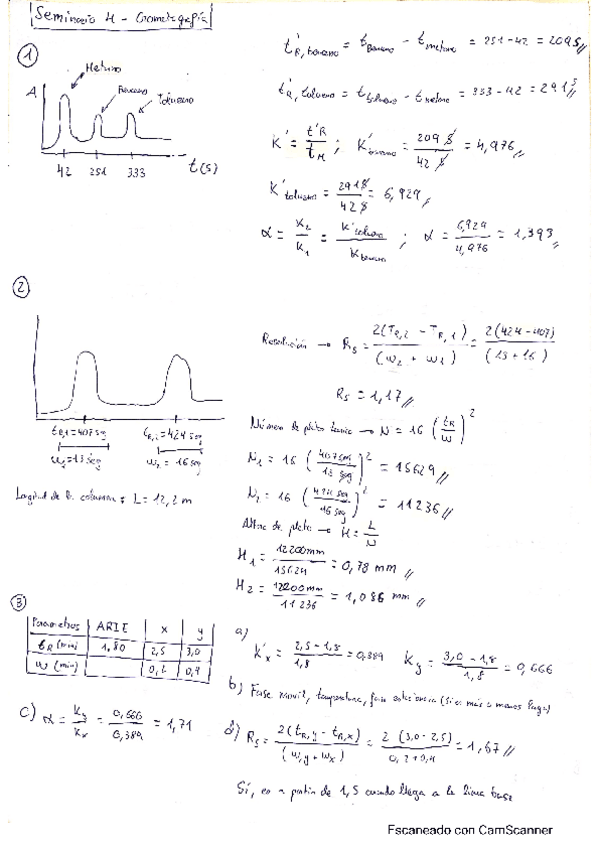 Seminario 4 - Cromatografía
①
Metano
Benceno
Tolueno
A
42 251 333 t(s)
t'R, benceno = t Benceno - t metano = 251-42 = 209 s //
t'R, tolueno = t tolueno - t metano = 333-42 = 291 s //
K' = t'R / tM ; K' benceno = 209 s / 42 s = 4,976 //
K' tolueno = 291 s / 42 s = 6,929 //
α = K2 / K1 = K' tolueno / K benceno ; α = 6,929 / 4,976 = 1,393 //
②
tR,1 = 407 seg tR,2 = 424 seg
w1 = 13 seg w2 = 16 seg
Longitud de la columna: L = 12,2 m
Resolución → Rs = 2(TR,2 - TR,1) / (w2 + w1) = 2(424-407) / (13+16)
Rs = 1,17 //
Número de platos → N = 16 (tR / w)²
N1 = 16 (407 seg / 13 seg)² = 15629 //
N2 = 16 (424 seg / 16 seg)² = 11236 //
Altura de plato → H = L / N
H1 = 12200mm / 15629 = 0,78 mm //
H2 = 12200mm / 11236 = 1,086 mm //
③
Parametros x y
tR (min) 1,80 2,5 3,0
w (min) 0,2 0,4
a) K'x = 2,5-1,8 / 1,8 = 0,389 Ky = 3,0-1,8 / 1,8 = 0,666
b) Fase movil, temperatura, fase estacionaria (si es más o menos larga)
c) α = Ky / Kx = 0,666 / 0,389 = 1,71
d) Rs = 2(tR,y - tR,x) / (w,y + wx) = 2 (3,0-2,5) / 0,2+0,4 = 1,67 //
Sí, es a partir de 1,5 cuando llega a la línea base
Escaneado con CamScanner